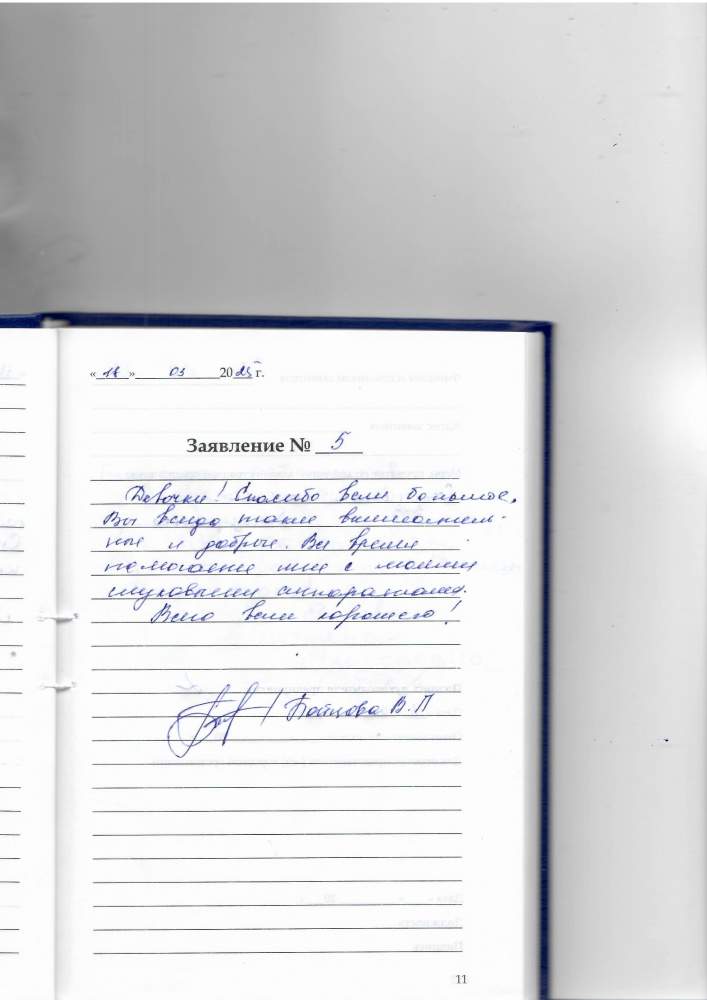 «18» 03 2025 г.
Заявление № 5
Девочки! Спасибо вам большое,
Вы всегда такие вниматель-
ные и добрые. Все время
помогаете мне с моими
слуховыми аппаратами.
Всего вам хорошего!
/ Бойцова В. П
11